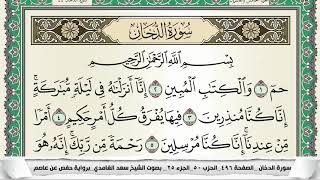 سُورَةُ الدُّخَانِ
بِسْمِ اللَّهِ الرَّحْمَٰنِ الرَّحِيمِ
حمٓ ١ وَالْكِتَٰبِ الْمُبِينِ ٢ إِنَّآ أَنزَلْنَٰهُ فِى لَيْلَةٍ مُّبَٰرَكَةٍ ۚ
إِنَّا كُنَّا مُنذِرِينَ ٣ فِيهَا يُفْرَقُ كُلُّ أَمْرٍ حَكِيمٍ ٤ أَمْرًا
مِّنْ عِندِنَآ ۚ إِنَّا كُنَّا مُرْسِلِينَ ٥ رَحْمَةً مِّن رَّبِّكَ ۚ إِنَّهُۥ هُوَ
سورة الدخان _ الصفحة ٤٩٦ _ الحزب ٥٠ _ الجزء ٢٥ _ بصوت الشيخ سعد الغامدي _ برواية حفص عن عاصم